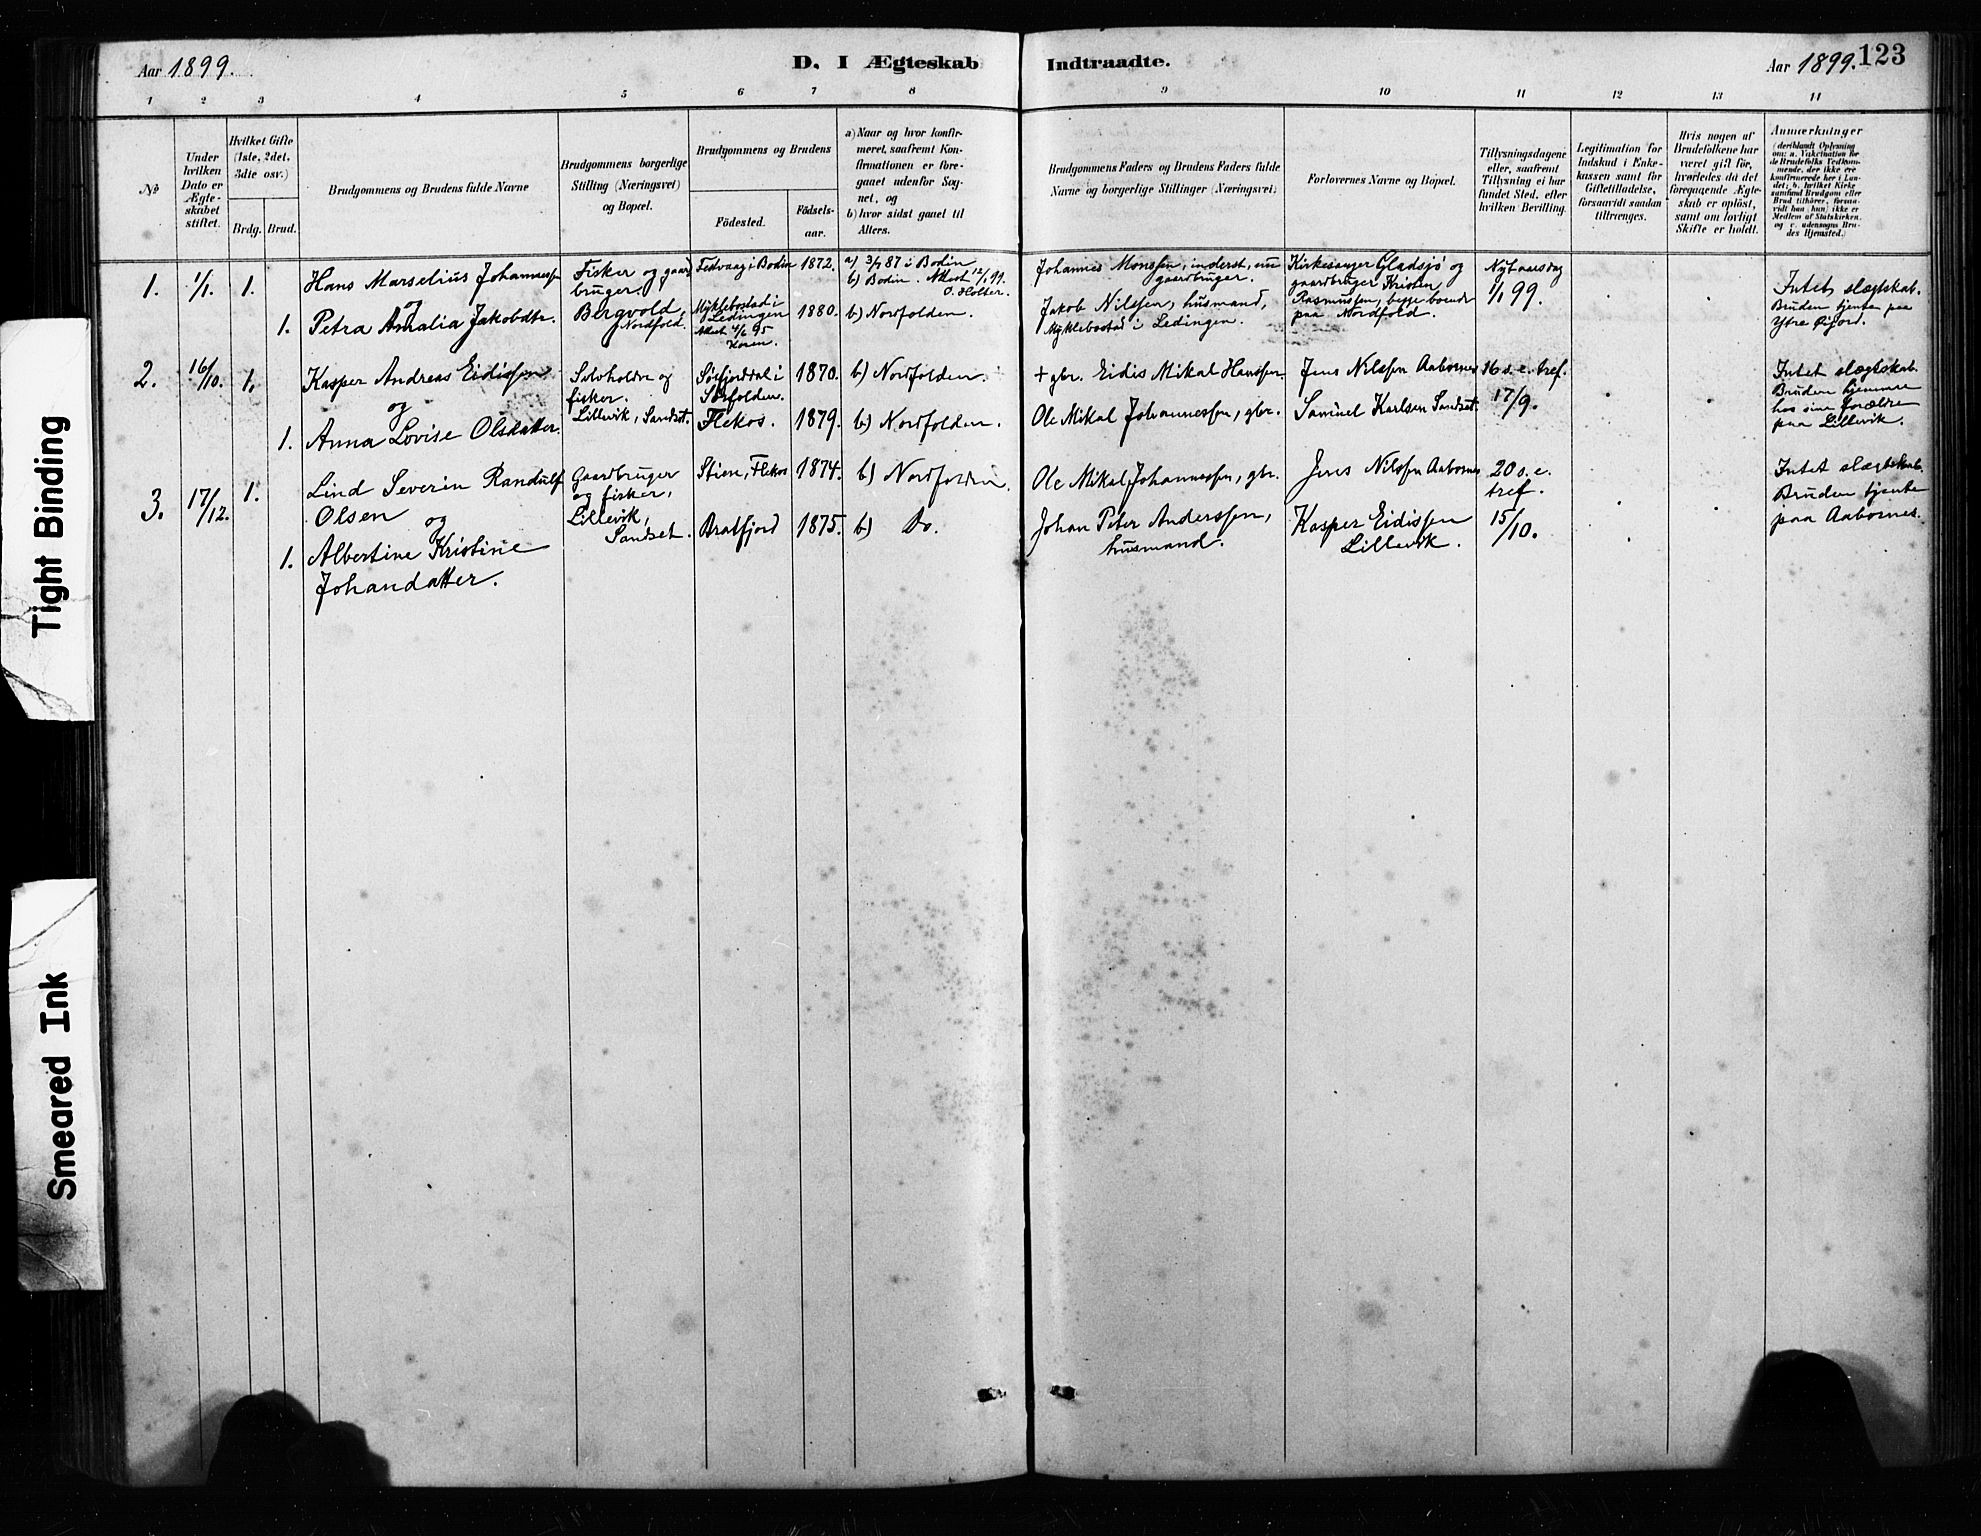 Tight Binding
Smeared Ink
Aar 1899.
D. I Ægteskab Indtraadte.
Aar 1899. 123
1 2 3 4 5 6 7 8 9 10 11 12 13 14
No
Under
hvilken
Dato er
Ægte-
skabet
stiftet.
Hvilket Gifte
(1ste, 2det,
3die osv.)
Brdg. Brud.
Brudgommens og Brudens fulde Navne
Brudgommens borgerlige
Stilling (Næringsvei)
og Bopæl.
Brudgommens og Brudens
Födested.
Födsels-
aar.
a) Naar og hvor konfir-
meret, saafremt Kon-
firmationen er fore-
gaaet udenfor Sog-
net, og
b) hvor sidst gaaet til
Alters.
Brudgommens Faders og Brudens Faders fulde
Navne og borgerlige Stillinger (Næringsvei)
Forlovernes Navne og Bopæl.
Tillysningsdagene
eller, saafremt
Tillysning ei har
fundet Sted, efter
hvilken Bevilling.
Legitimation for
Indskud i Enke-
kassen samt for
Giftetilladelse,
forsaavidt saadan
tiltrænges.
Hvis nogen af
Brudefolkene har
været gift för,
hvorledes da det
foregaaende Ægte-
skab er oplöst,
samt om lovligt
Skifte er holdt.
Anmærkninger
(deriblandt Oplysning
om: a. Vakcination for
de Brudefolks Vedkom-
mende, der ikke ere
konfirmerede her i Lan-
det; b. hvilket Kirke-
samfund Brudgom eller
Brud tilhörer, forsaa-
vidt han (hun) ikke er
Medlem af Statskirken,
og c. udensogns Bru-
des Hjemsted.)
1. 1/1. 1.
Hans Marselius Johannessen
og
1. Petra Amalia Jakobdtr.
Fisker og gaard
bruger,
Bergvold,
Nordfold.
Festvaag i Bodin 1872.
Myklebostad i
Ledingen
Attest 4/6 95
1880.
a) 3/7 87 i Bodin
b) Bodin. Attest 12/1 99.
O. Holter.
b) Nordfolden.
Johannes Monssen, inderst, nu
gaardbruger.
Jakob Nilssen, husmand,
Myklebostad i Ledingen.
Kirkesanger Gladsjø og
gaardbruger Kristen
Rasmussen, begge boende
paa Nordfold.
Nytaarsdag
1/1 99.
Intet slægtskab.
Bruden tjente paa
Ytre
2. 16/10. 1.
Kasper Andreas Eidissen
og
1. Anna Lovise Olsdatter.
Selvholder og
fisker.
Lillevik, Sandset.
Sørfjorddal i
Sørfolden. 1870.
Flekos. 1879.
b) Nordfolden.
b) Nordfolden.
+ gbr. Eidis Mikal Hanssen.
Ole Mikal Johannessen, gbr.
Jens Nilssen Aabornes
Samuel Karlsen Sandset.
16 s. e. tref.
17/9.
Intet slægtskab.
Bruden hjemme
hos sine forældre
paa Lillevik.
3. 17/12. 1.
Lind Severin Randulf
Olsen
og
1. Albertine Kristine
Johandatter.
Gaardbruger
og fisker,
Lillevik,
Sandset.
Stien, Flekos 1874.
Bratfjord 1875.
b) Nordfolden.
b) Do.
Ole Mikal Johannessen, gbr.
Johan Peter Anderssen,
husmand.
Jens Nilssen Aabornes
Kasper Eidissen
Lillevik.
20 s. e.
tref.
15/10.
Intet slægtskab.
Bruden tjente
paa Aabornes.